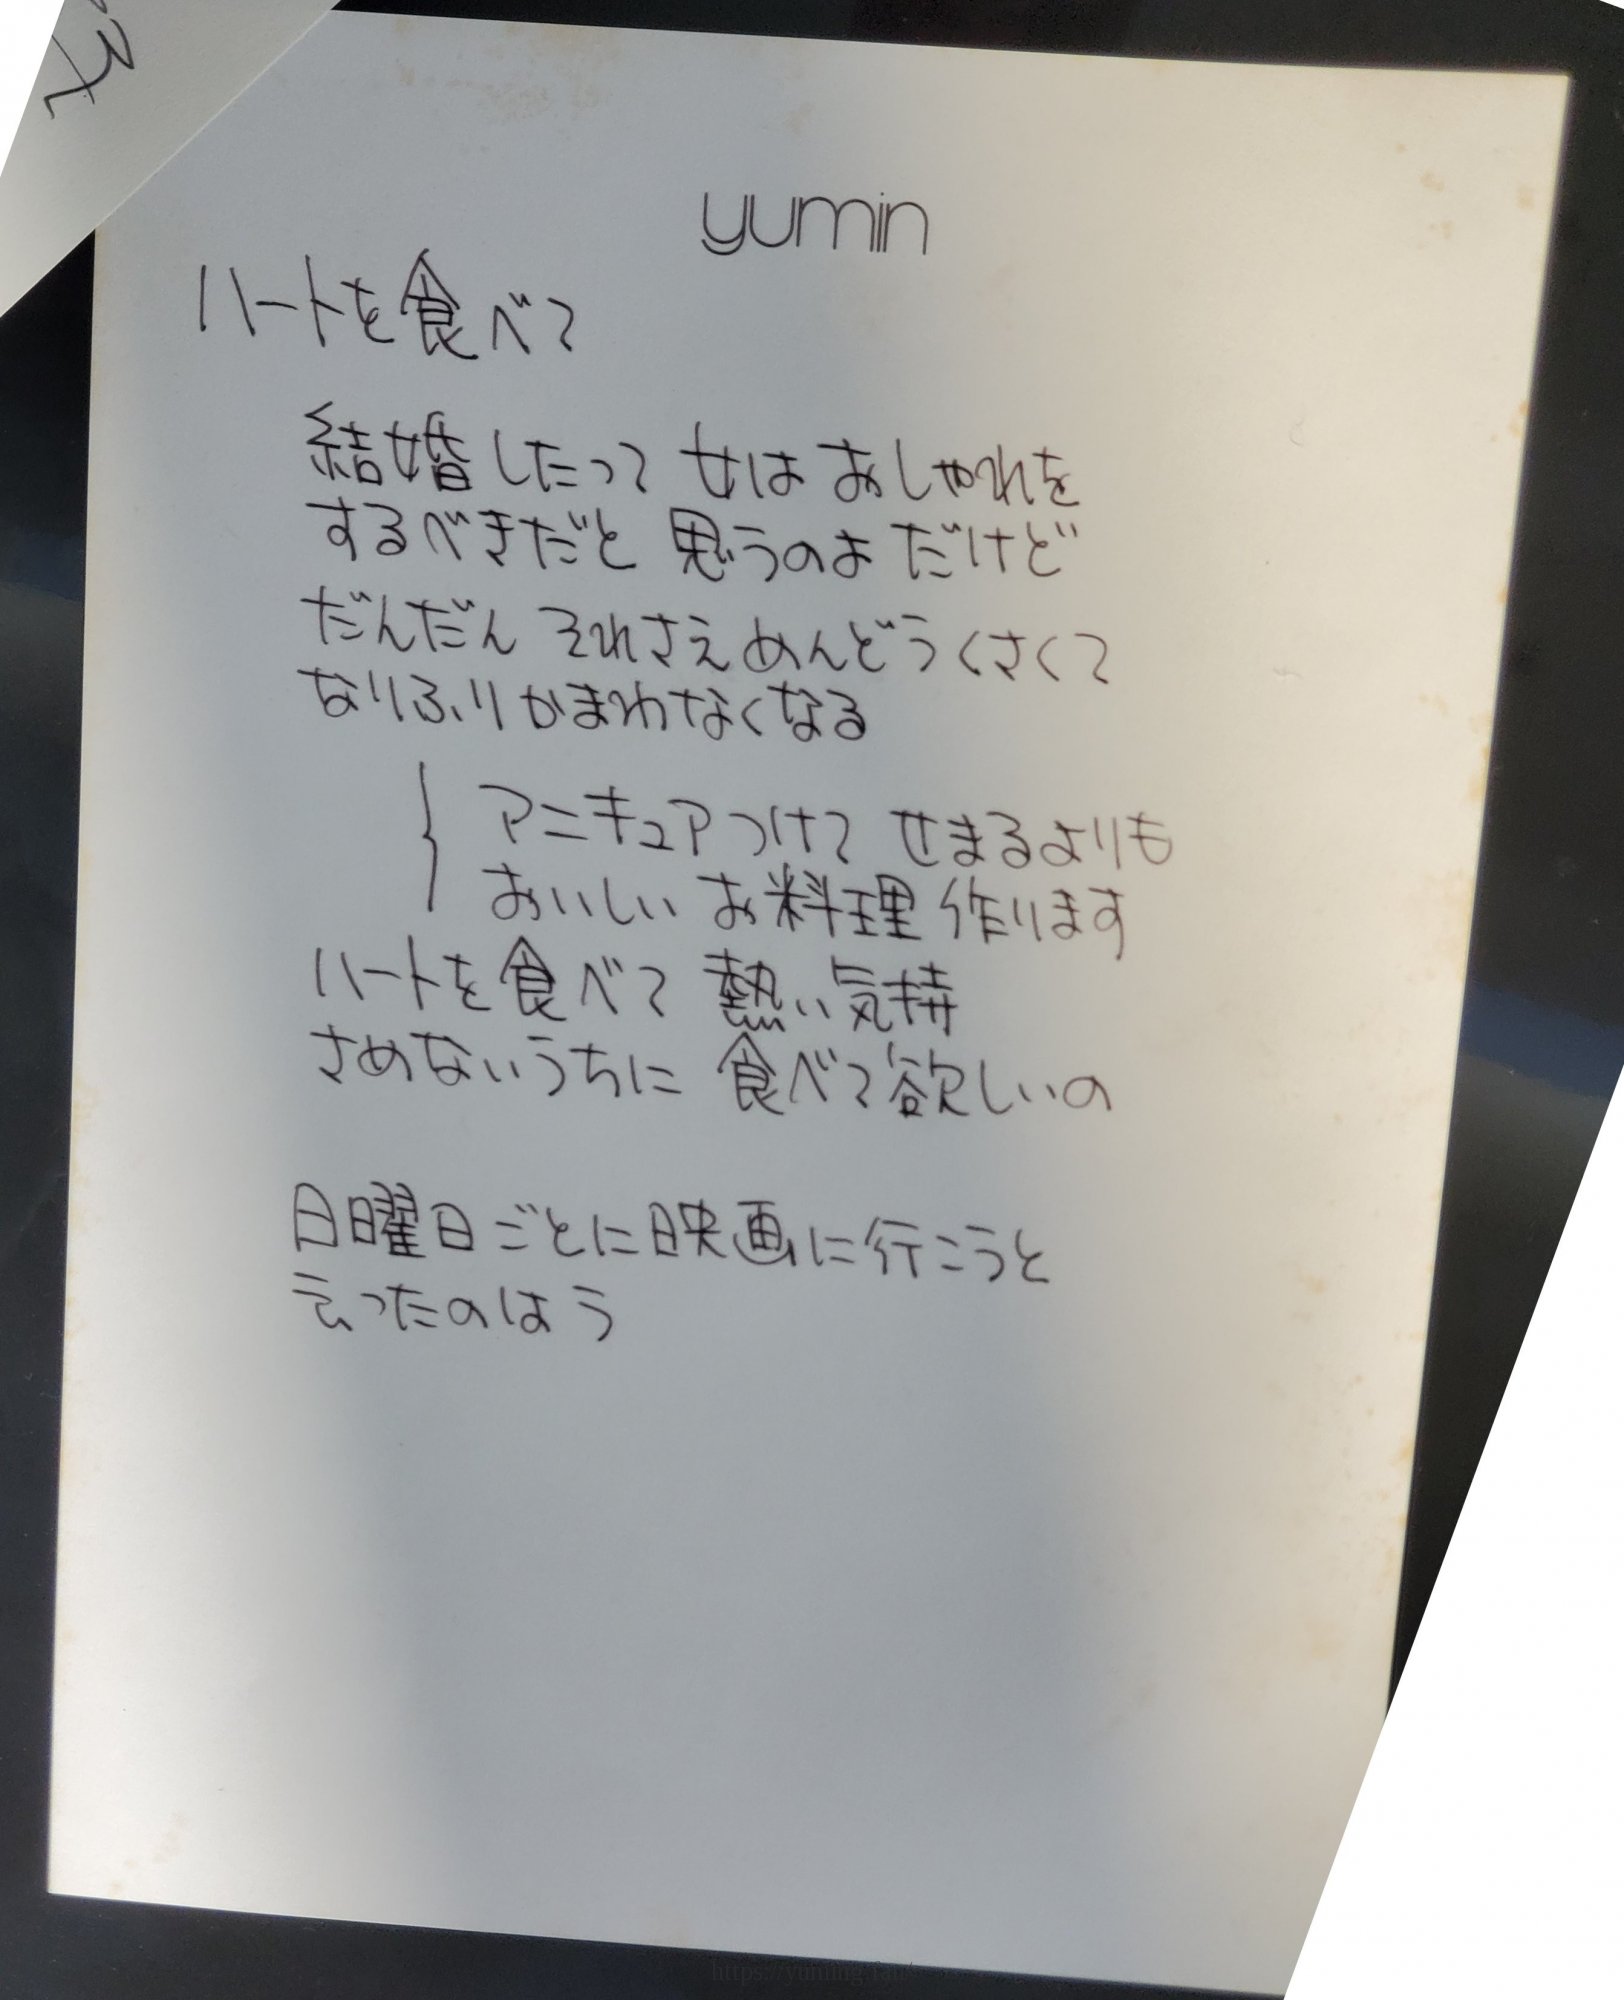 yumin
ハートを食べて
結婚したって 女は おしゃれを
するべきだと 思うのよ だけど
だんだん それさえ めんどうくさくて
なりふり かまわなくなる
マニキュアつけて せまるよりも
おいしい お料理 作ります
ハートを食べて 熱い気持
さめないうちに 食べて欲しいの
日曜日ごとに映画に行こうと
言ったのはう